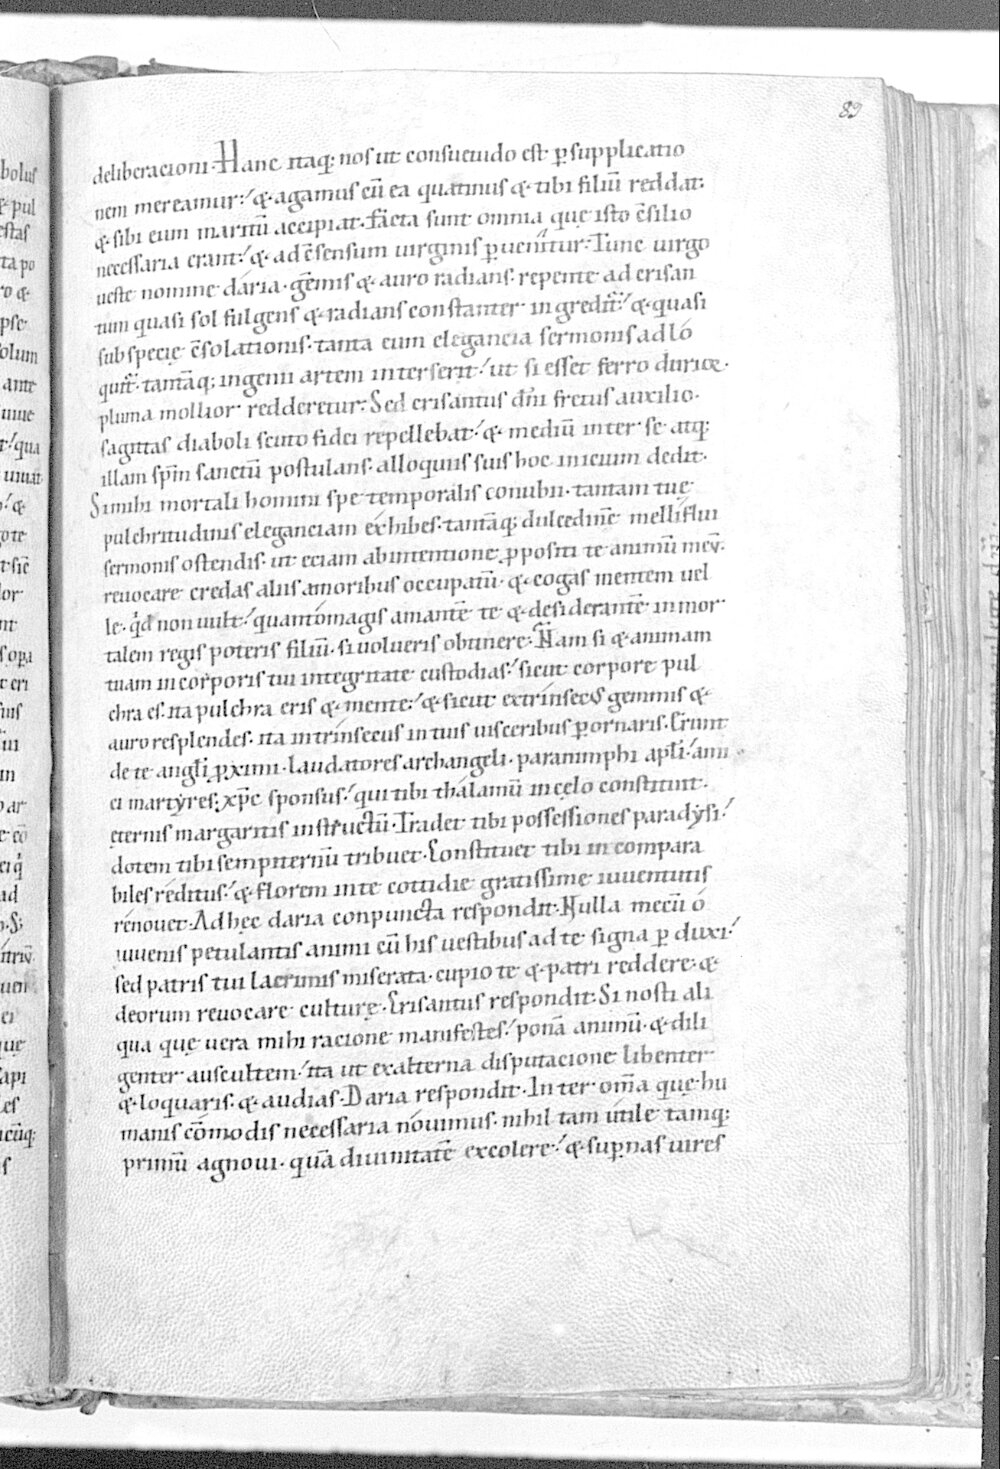 89
deliberacioni. Hanc itaq; nos ut consuetudo est p̱supplicatio
nem mereamur: & agamus cū ea quatinus & tibi filiū reddat:
& sibi eum maritū accipiat. Facta sunt omnia quę isto c̄silio
necessaria erant: & ad c̄sensum virginis p̱uenitur. Tunc virgo
ueste nomine dária. gēmis & auro radians. repente ad crisan
tum quasi sol fulgens & radians constanter ingredit̄: & quasi
sub specię c̄solationis. tanta eum elegancia sermonis ad ló
quit̄. tantaq; ingenii artem interserit: ut si esset ferro durior.
pluma mollior redderetur. Sed crisantus dn̄i fretus auxilio.
sagittas diaboli scuto fidei repellebat: & mediū inter se atq;
illam sp̄m sanctū postulans. alloquiis suis hoc inicium dedit.
Si mihi mortali homini spe temporális conubii. tantam tuę
pulchritudinis eleganciam exhibes. tantāq; dulcedinē melliflui
sermonis ostendis. ut eciam ab intentione p̱positi te animū meū.
reuocare credas aliis amoribus occupatū. & cogas mentem uel
le. qd́ non uult: quantómagis amantē te & desiderantē inmor
talem regis poteris filiū. si uolueris obtinere. Nam si & animam
tuam incorporis tui integritate custodias: sicut corpore pul
chra es. ita pulchra eris & mente: & sicut extrínsecus gemmis &
auro resplendes. ita intrínsecus in tuis uisceribus p̱ornaris. Erunt
de te angl̄i p̱ximi. laudatores archangeli. paranimphi apl̄i: ami
ci martyres; xp̄c sponsus: qui tibi thálamū in cęlo constituit.
ęternis margaritis instructū. Tradet tibi possessiones paradysi:
dotem tibi sempiternū tribuet. Constituet tibi in compara
biles réditus: & florem in te cottidie gratissime iuuentutis
rénouet. Ad hęc daria conpuncta respondit. Nulla mecū ó
iuuenis petulantis animi cū his uestibus ad te signa p̱duxi:
sed patris tui lacrimis miserata. cupio te & patri reddere. &
deorum reuocare culturę. Crisantus respondit. Si nosti ali
qua quę uera mihi racione manifestes: ponā animū. & dili
genter auscultem: ita ut ex alterna disputacione libenter
& loquaris. & audias. Daria respondit. Inter om̄a quę hu
manis cōmodis necessaria nóuimus. nihil tam útile tamq;
primū agnoui. quā diuinitatē excolere: & sup̱nas uires